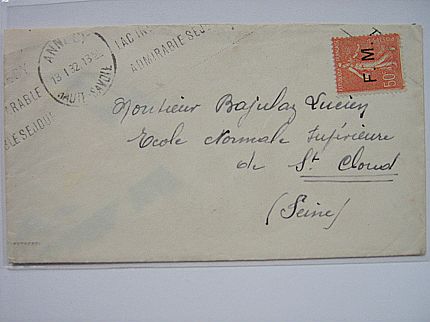 ANNECY
13-1 32 13
HAUTE-SAVOIE
LAC IN
ADMIRABLE SEJO
RABLE
BLE SEJOUR
F. M.
50
Monsieur Bajulaz Lucien
Ecole Normale Supérieure
de St Cloud
(Seine)